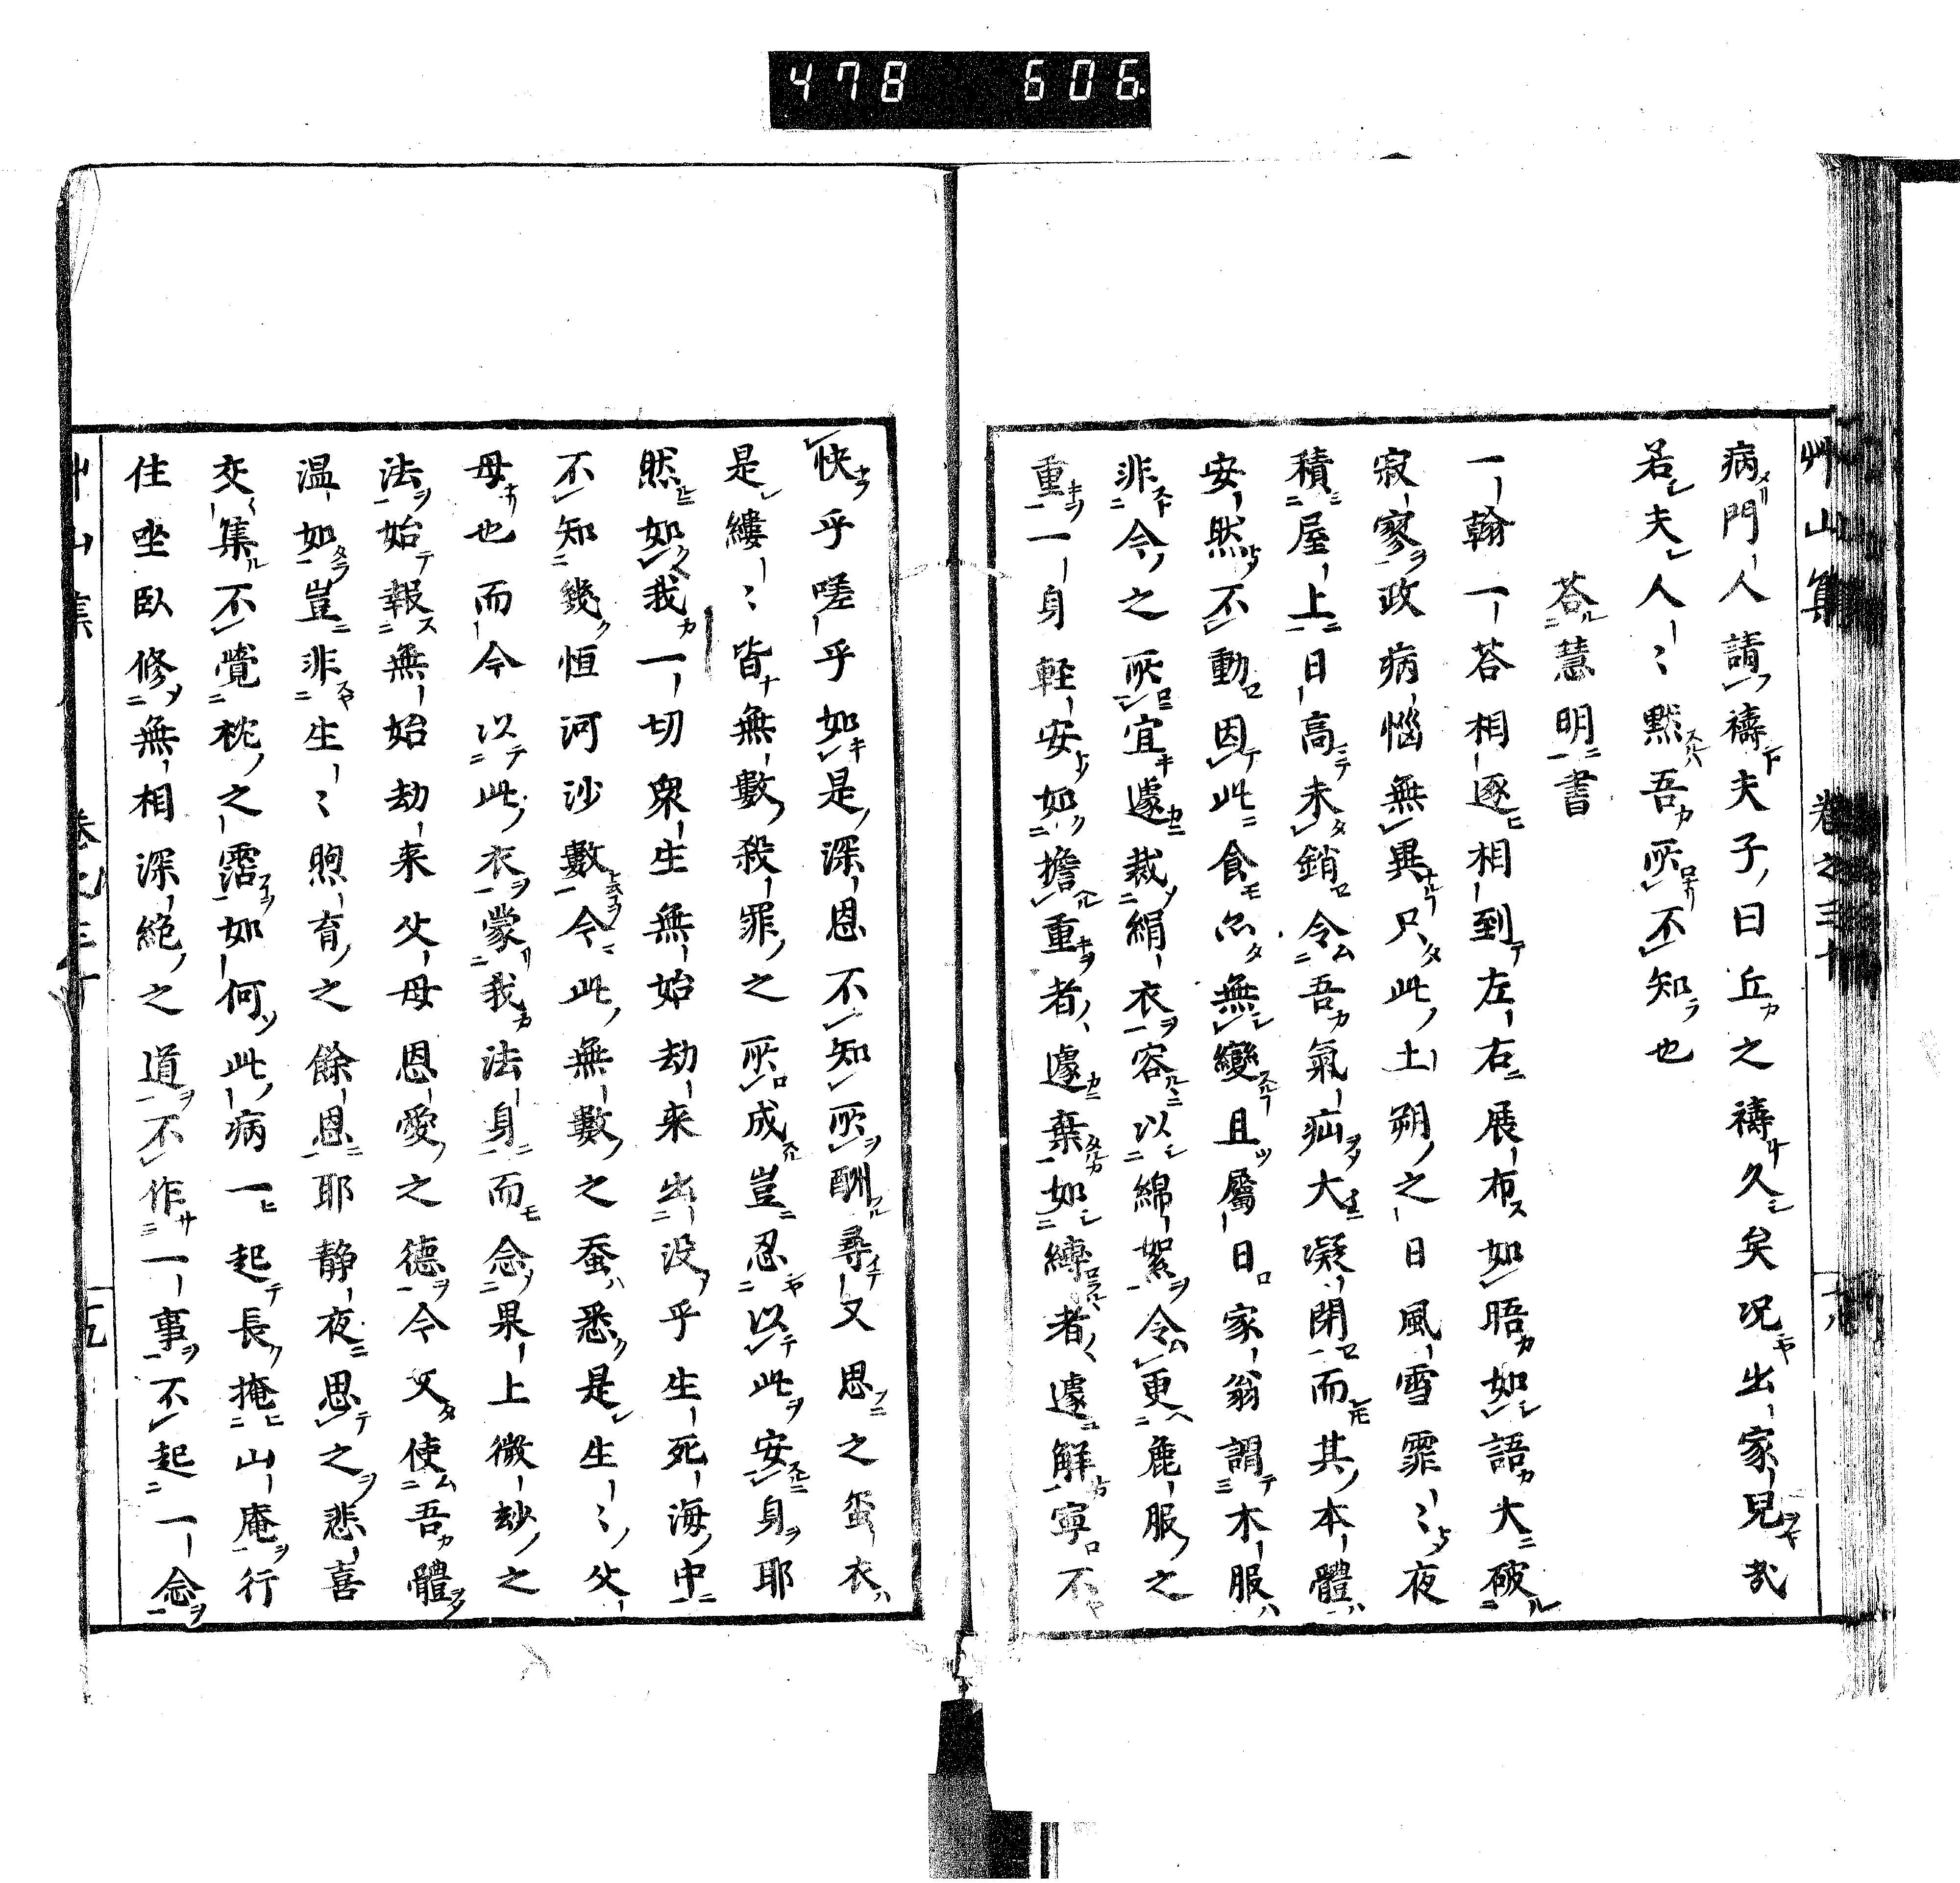 478 606.
艸山集 卷之三十
病門人請禱夫子曰丘之禱久矣況出家兒哉
若夫人〻黙吾所不知也
荅慧明書
一翰一荅相逐相到左右展布如晤如語大破
寂寥政病惱無異只此土朔之日風雪霏〻夜
積屋上日高未銷令吾氣疝大凝閉而其本體
安然不動因此食亦無變且屬日家翁謂木服
非今之所宜遽裁絹衣容以綿絮令更麁服之
重一身輕安如擔重者遽棄如縛者遽解寧不
快乎嗟乎如是深恩不知所酬尋又思之蚕衣
是縷〻皆無數殺罪之所成豈忍以此安身耶
然如我一切衆生無始劫来出没乎生死海中
不知幾恒河沙數今此無數之蚕悉是生〻父
母也而今以此衣蒙我法身而念果上微玅之
法始報無始劫来父母恩愛之德今又使吾體
温如豈非生〻煦育之餘恩耶静夜思之悲喜
交集不覺枕之霑如何此病一起長掩山庵行
住坐臥修無相深絶之道不作一事不起一念